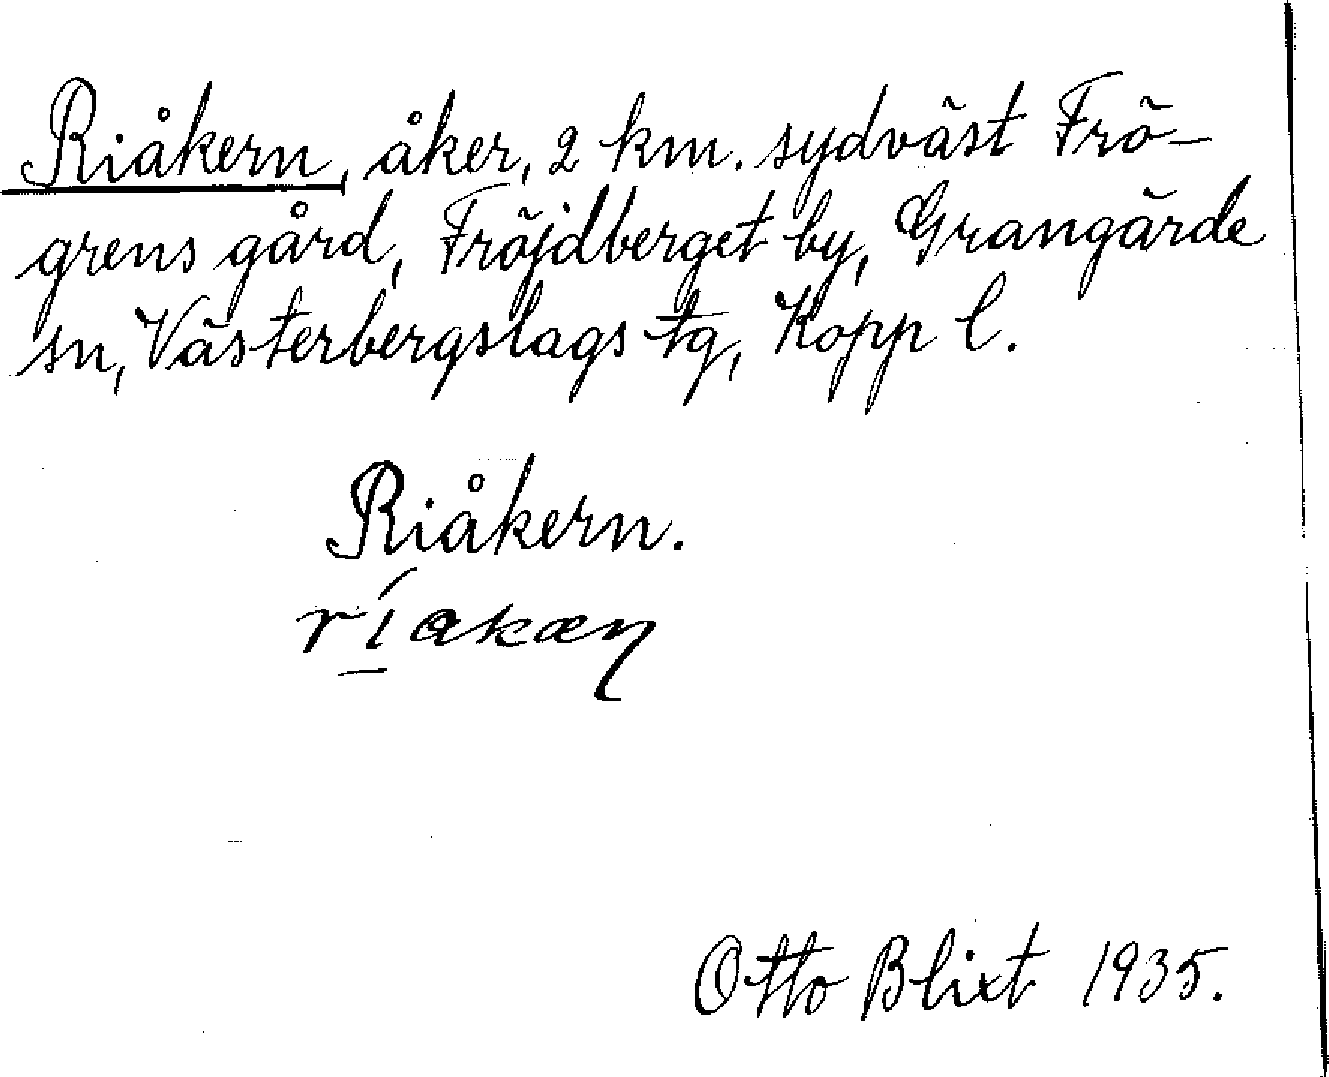 Riåkern, åker, 2 km. sydväst Frö-
grens gård, Fröjdberget by, Grangärde
sn, Västerbergslags tg, Kopp l.
Riåkern.
Otto Blixt 1935.